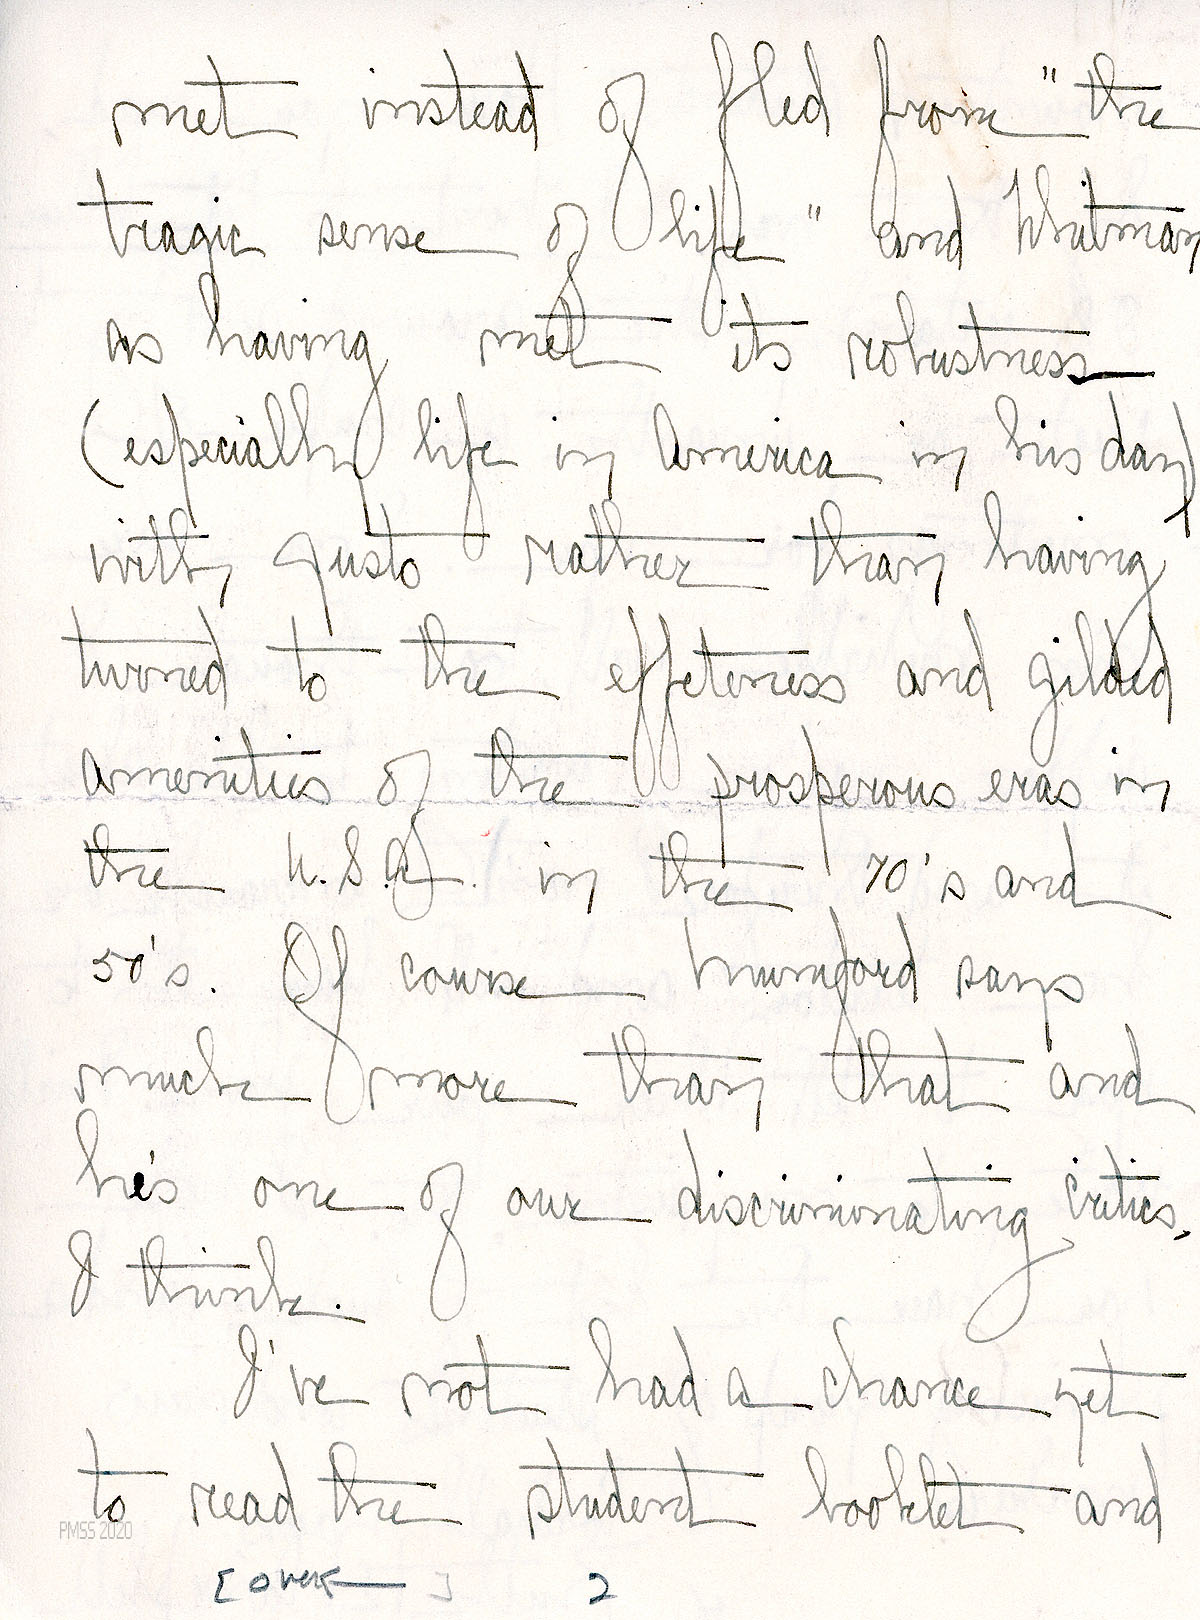 met instead of fled from "the
tragic sense of life" and Whitman
as having met its robustness
(especially life in America in his day)
with gusto rather than having
turned to the effeteness and gilded
amenities of the prosperous eras in
the U.S.A. in the 70's and
50's. Of course Mumford says
much more than that and
he's one of our discriminating critics,
I think.
I've not had a chance yet
to read the student booklet and
PMSS 2020
[over] 2